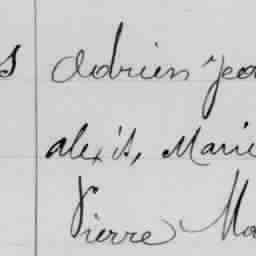 s Adrien Jea
alexis, Marie
Pierre Ma